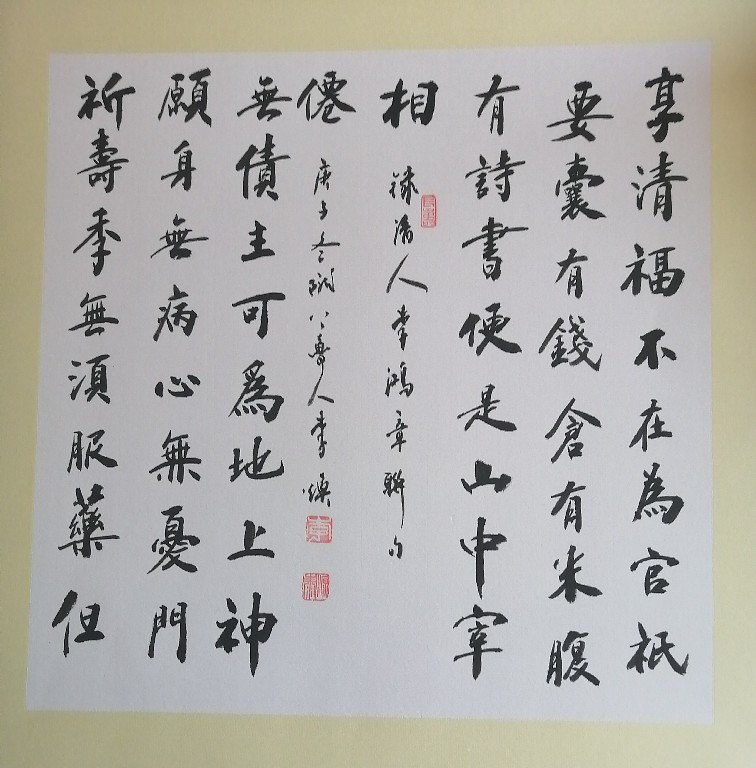 享清福不在為官祇
要囊有錢倉有米腹
有詩書便是山中宰
相
錄清人李鴻章聯句
祈壽秊無湏服藥但
願身無病心無憂門
無債主可爲地上神
僊
庚子冬 魯人李